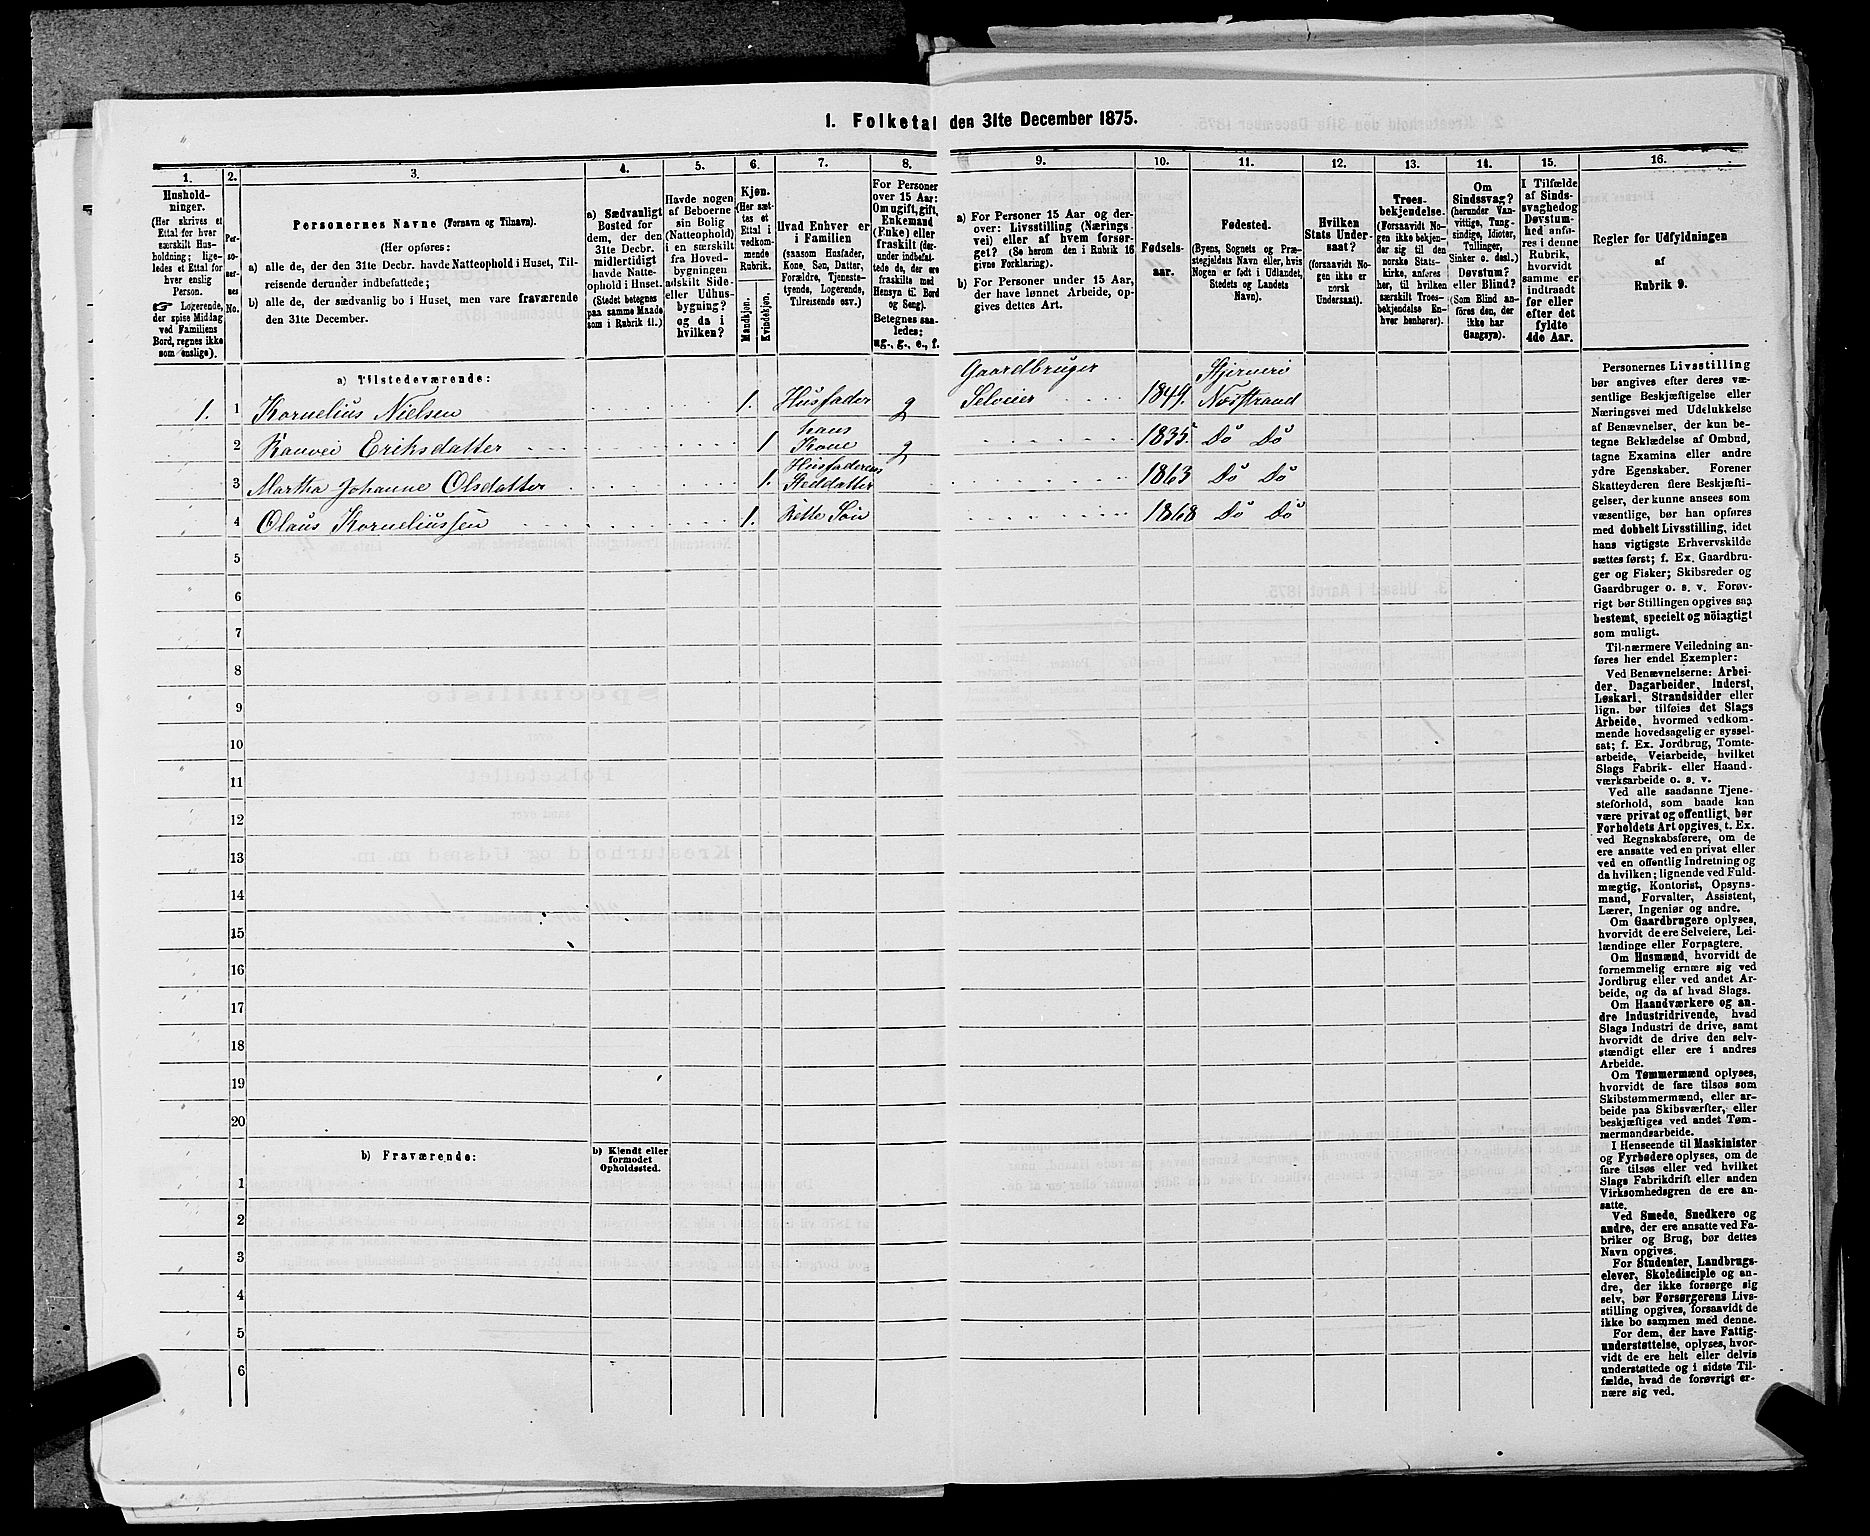 1. Folketal den 31te December 1875.
1. 2. 3. 4. 5. 6. 7. 8. 9. 10. 11. 12. 13. 14. 15. 16.
Hushold-
ninger.
(Her skrives et
Ettal for hver
særskilt Hus-
holdning; lige-
ledes et Ettal for
hver enslig
Person.
☞ Logerende,
der spise Middag
ved Familiens
Bord, regnes ikke
som enslige).
Per-
so-
ner-
nes
No.
Personernes Navne (Fornavn og Tilnavn).
(Her opføres:
a) alle de, der den 31te Decbr. havde Natteophold i Huset, Til-
reisende derunder indbefattede;
b) alle de, der sædvanlig bo i Huset, men vare fraværende
den 31te December.
a) Sædvanligt
Bosted for
dem, der den
31te Decbr.
midlertidigt
havde Natte-
ophold i Huset.
(Stedet betegnes
paa samme Maade
som i Rubrik 11.)
Havde nogen
af Beboerne
sin Bolig
(Natteophold)
i en særskilt
fra Hoved-
bygningen
adskilt Side-
eller Udhus-
bygning?
og da i
hvilken?
Kjøn.
(Her sæt-
tes et
Ettal i
vedkom-
mende
Rubrik.
Mandkjøn.
Kvindekjøn.
Hvad Enhver er
i Familien
(saasom Husfader,
Kone, Søn, Datter,
Forældre, Tjeneste-
tyende, Logerende,
Tilreisende osv.)
For Personer
over 15 Aar:
Om ugift, gift,
Enkemand
(Enke) eller
fraskilt (der-
under indbefat-
tede de, der ere
fraskilte med
Hensyn til Bord
og Seng).
Betegnes saa-
ledes:
ug., g., e., f.
a) For Personer 15 Aar og der-
over: Livsstilling (Nærings-
vei) eller af hvem forsør-
get? (Se herom den i Rubrik 16
givne Forklaring).
b) For Personer under 15 Aar,
der have lønnet Arbeide, op-
gives dettes Art.
Fødsels-
aar.
Fødested.
(Byens, Sognets og Præ-
stegjeldets Navn eller, hvis
Nogen er født i Udlandet,
Stedets og Landets
Navn).
Hvilken
Stats Under-
saat?
(forsaavidt No-
gen ikke er
norsk
Undersaat).
Troes-
bekjendelse.
(Forsaavidt No-
gen ikke bekjen-
der sig til den
norske Stats-
kirke, anføres
her, til hvilken
særskilt Troes-
bekjendelse En-
hver henhører).
Om
Sindssvag?
(herunder Van-
vittige, Tung-
sindige, Idioter,
Tullinger,
Sinker o. desl.)
Døvstum?
eller Blind?
(Som Blind an-
føres den, der
ikke har
Gangsyn).
I Tilfælde
af Sinds-
svaghed og
Døvstum-
hed anfø-
res i denne
Rubrik,
hvorvidt
samme er
indtraadt
før eller
efter det
fyldte
4de Aar.
Regler for Udfyldningen
af
Rubrik 9.
a) Tilstedeværende:
1. 1 Kornelius Nielsen 1. Husfader g Gaardbruger Selveier 1849. Hjernerö Næstrand
2 Ranvei Eriksdatter 1 hans Kone g 1835. Dö Dö
3 Martha Johanne Olsdatter 1. Husfaderens Steddatter 1863 Dö Dö
4 Olaus Korneliussen 1. Rette Sön 1868 Dö Dö
5
6
7
8
9
10
11
12
13
14
15
16
17
18
19
20
b) Fraværende:
b) Kjendt eller
formodet
Opholdssted.
1
2
3
4
5
6
Personernes Livsstilling
bør angives efter deres væ-
sentlige Beskjæftigelse eller
Næringsvei med Udelukkelse
af Benævnelser, der kun be-
tegne Beklædelse af Ombud,
tagne Examina eller andre
ydre Egenskaber. Forener
Skatteyderen flere Beskjæfti-
gelser, der kunne ansees som
væsentlige, bør han opføres
med dobbelt Livsstilling, idet
hans vigtigste Erhvervskilde
sættes først; f. Ex. Gaardbru-
ger og Fisker; Skibsreder og
Gaardbruger o. s. v. Forøv-
rigt bør Stillingen opgives saa
bestemt, specielt og nöiagtigt
som muligt.
Til nærmere Veiledning an-
føres her endel Exempler:
Ved Benævnelserne: Arbei-
der, Dagarbeider, Inderst,
Løskarl, Strandsidder eller
lign. bør tilføies det Slags
Arbeide, hvormed vedkom-
mende hovedsagelig er syssel-
sat; f. Ex. Jordbrug, Tomte-
arbeide, Veiarbeide, hvilket
Slags Fabrik- eller Haand-
værksarbeide o. s. v.
Ved alle saadanne Tjene-
steforhold, som baade kan
være privat og offentligt, bør
Forholdets Art opgives, t. Ex.
ved Regnskabsførere, om de
ere ansatte ved en privat eller
ved en offentlig Indretning og
da hvilken; lignende ved Fuld-
mægtig, Kontorist, Opsyns-
mand, Forvalter, Assistent,
Lærer, Ingeniør og andre.
Om Gaardbrugere oplyses,
hvorvidt de ere Selveiere, Lei-
lændinge eller Forpagtere.
Om Husmænd, hvorvidt de
fornemmelig ernære sig ved
Jordbrug eller ved andet Ar-
beide, og da af hvad Slags.
Om Haandværkere og an-
dre Industridrivende, hvad
Slags Industri de drive, samt
hvorvidt de drive den selv-
stændigt eller ere i andres
Arbeide.
Om Tømmermænd oplyses,
hvorvidt de fare tilsøs som
Skibstømmermænd, eller ar-
beide paa Skibsværfter, eller
beskjæftiges ved andet Tøm-
mermandsarbeide.
I Henseende til Maskinister
og Fyrbødere oplyses, om de
fare tilsøs eller ved hvilket
Slags Fabrikdrift eller anden
Virksomhedsgren de ere an-
satte.
Ved Smede, Snedkere og
andre, der ere ansatte ved Fa-
briker og Brug, bør dettes
Navn opgives.
For Studenter, Landbrugs-
elever, Skoledisciple og an-
dre, der ikke forsørge sig
selv, bør Forsørgerens Livs-
stilling opgives, forsaavidt de
ikke bo sammen med denne.
For dem, der have Fattig-
understøttelse, oplyses, hvor-
vidt de ere helt eller delvis
understøttede og i sidste Til-
fælde, hvad de forøvrigt er-
nære sig ved.